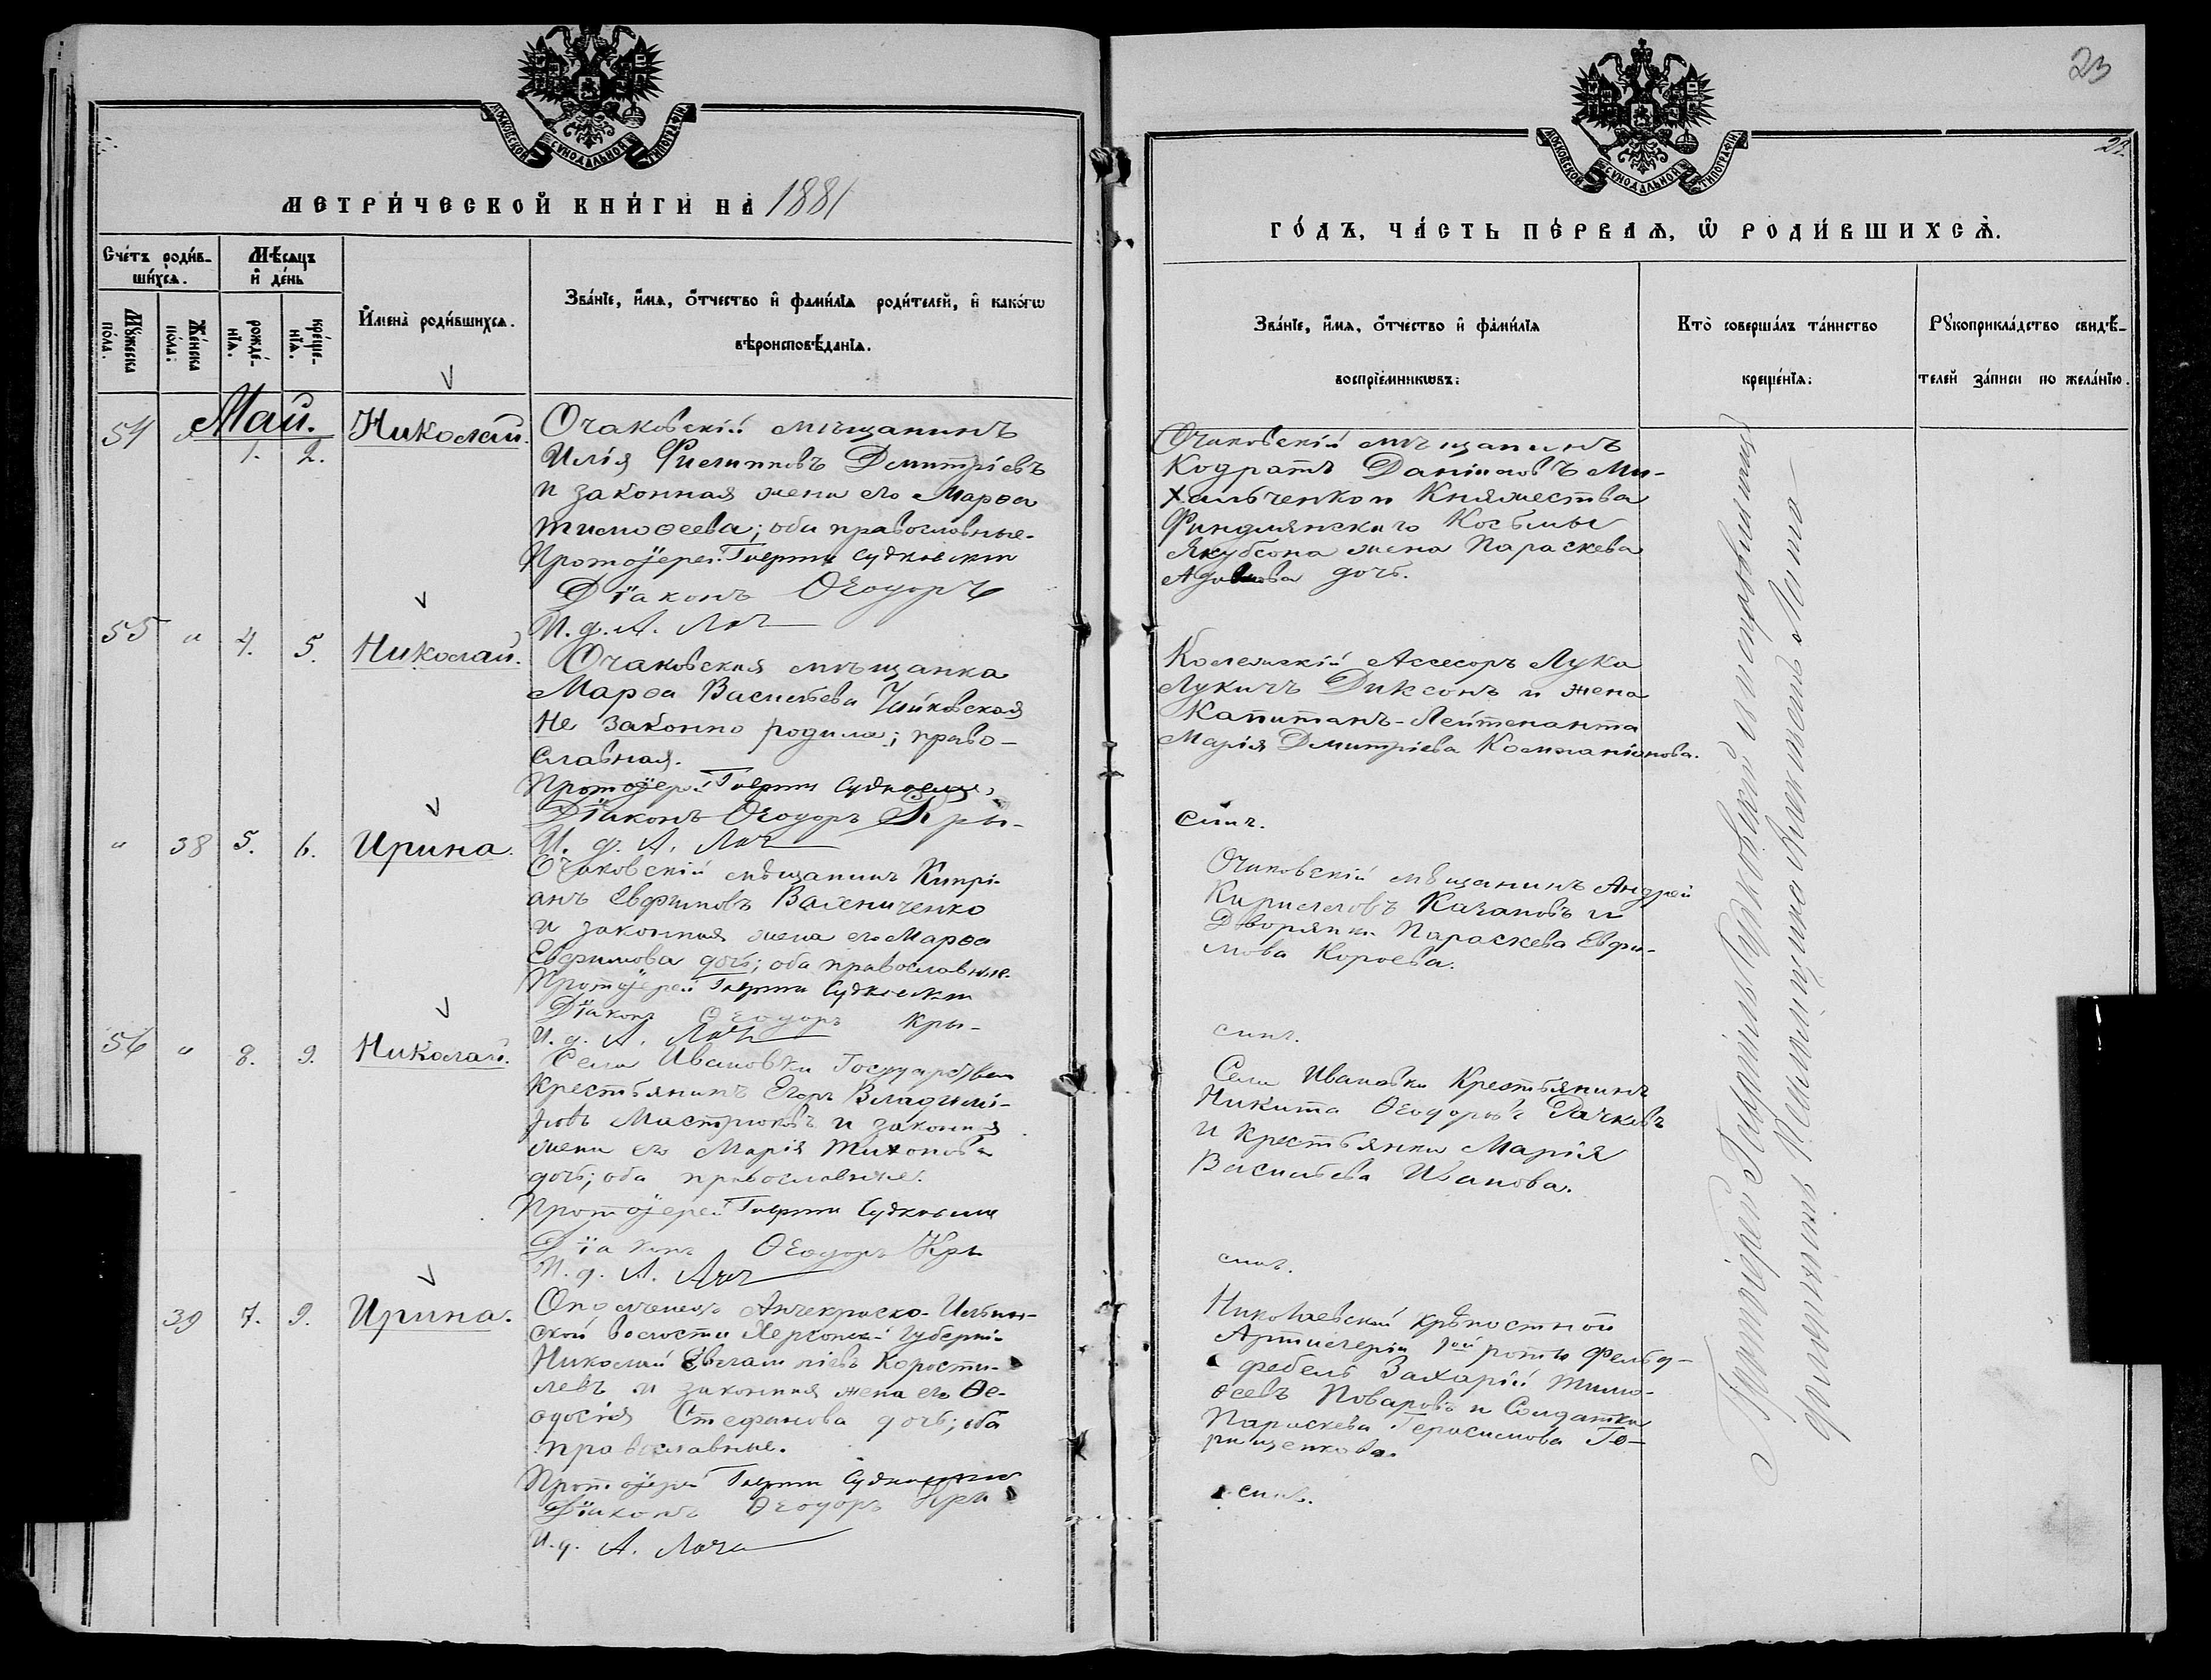 23
22.
МОСКОВСКОЙ СУНОДАЛЬНОЙ ТИПОГРАФІИ
МОСКОВСКОЙ СУНОДАЛЬНОЙ ТИПОГРАФІИ
МЕТРИ́ЧЕСКОЙ КНИ́ГИ НА̀ 1881
ГО́ДЪ, ЧА́СТЬ ПЕ́РВАЯ, Ѡ РОДИ́ВШИХСЯ.
Сче́тъ роди́в-
ши́хся.
Мѣ́сяцъ
и҆ де́нь
Мꙋ́жеска
по́ла.
Же́нска
по́ла:
рожде́-
нїя.
креще-
нїя.
И҆мена̀ роди́вшихся.
Зва́нїе, и҆́мя, ѻ҆́тчество и҆ фами́лїя роди́телей, и҆ како́гѡ
вѣроисповѣ́данїя.
Зва́нїе, и҆́мя, ѻ҆́тчество и҆ фами́лїя
воспрїе́мникѡвъ:
Кто̀ соверша́лъ та́инство
креще́нїя:
Рꙋкоприкла́дство свидѣ́-
телей за́писи по жела́нїю.
Май.
54 " 1. 2. Николай.
Очаковскій мѣщанинъ
Илія Филипповъ Дмитріевъ
и законная жена его Марѳа
Тимоѳеева; оба православные.
Протоіерей Гавріилъ Судковскій
Діаконъ Ѳеодоръ
И. д. А. Лоч
Очаковскій мѣщанинъ
Кодратъ Даніиловъ Ми-
хальченко и Княжества
Финдляндскаго Косьмы
Якубсона жена Параскева
дочь.
55 " 4. 5. Николай.
Очаковская мѣщанка
Марѳа Васильева Чайковская
не законно родила; право-
славная.
Протоіерей Гавріилъ Судковскі
Діаконъ Ѳеодоръ Кры-
И. д. А. Лоч
Колежскій Ассесоръ Лука
Лукичъ Диксонъ и жена
Капитанъ-Лейтенанта
Марія Дмитріева Компаніонова.
син.
" 38 5. 6. Ирина.
Очаковскій мѣщанинъ Кипрі-
анъ Евфимовъ Вахниченко
и законная жена его Марѳа
Евфимова дочь; оба православные.
Протоіерей Гавріилъ Судковскій
Діаконъ Ѳеодоръ Кры-
И. д. А. Лоч
Очаковскій мѣщанинъ Андрей
Кирилловъ Качановъ и
Дворянка Параскева Евфи-
мова Короева.
син.
56 " 8. 9. Николай.
Села Ивановки Государствен
Крестьянинъ Егоръ Владимі-
ровъ Мастрюковъ и законная
жена его Марія Тихонова
дочь; оба православные.
Протоіерей Гавріилъ Судковскі
Діаконъ Ѳеодоръ Кры
И. д. А. Лоч
Села Ивановки Крестьянинъ
Никита Ѳеодоровъ Рачковъ
и крестьянка Марія
Васильева Иванова.
син.
39 7. 9. Ирина.
Ополченецъ Анчекракско-Ильин-
ской волости Херсонской Губерніи
Николай Евлампіевъ Корости-
левъ и законная жена его Ѳе-
одосія Стефанова дочь; оба
православные.
Протоіерей Гавріилъ Судковскій
Діаконъ Ѳеодоръ Кры
И. д. А. Лоча
Николаевской крѣпостной
Артилеріи роты Фельд-
фебель Захарій Тимо-
ѳеевъ Поваровъ и Солдатка
Параскева Герасимова Го-
рищенкова.
син.
Протоіерей Гавріилъ Судковскій